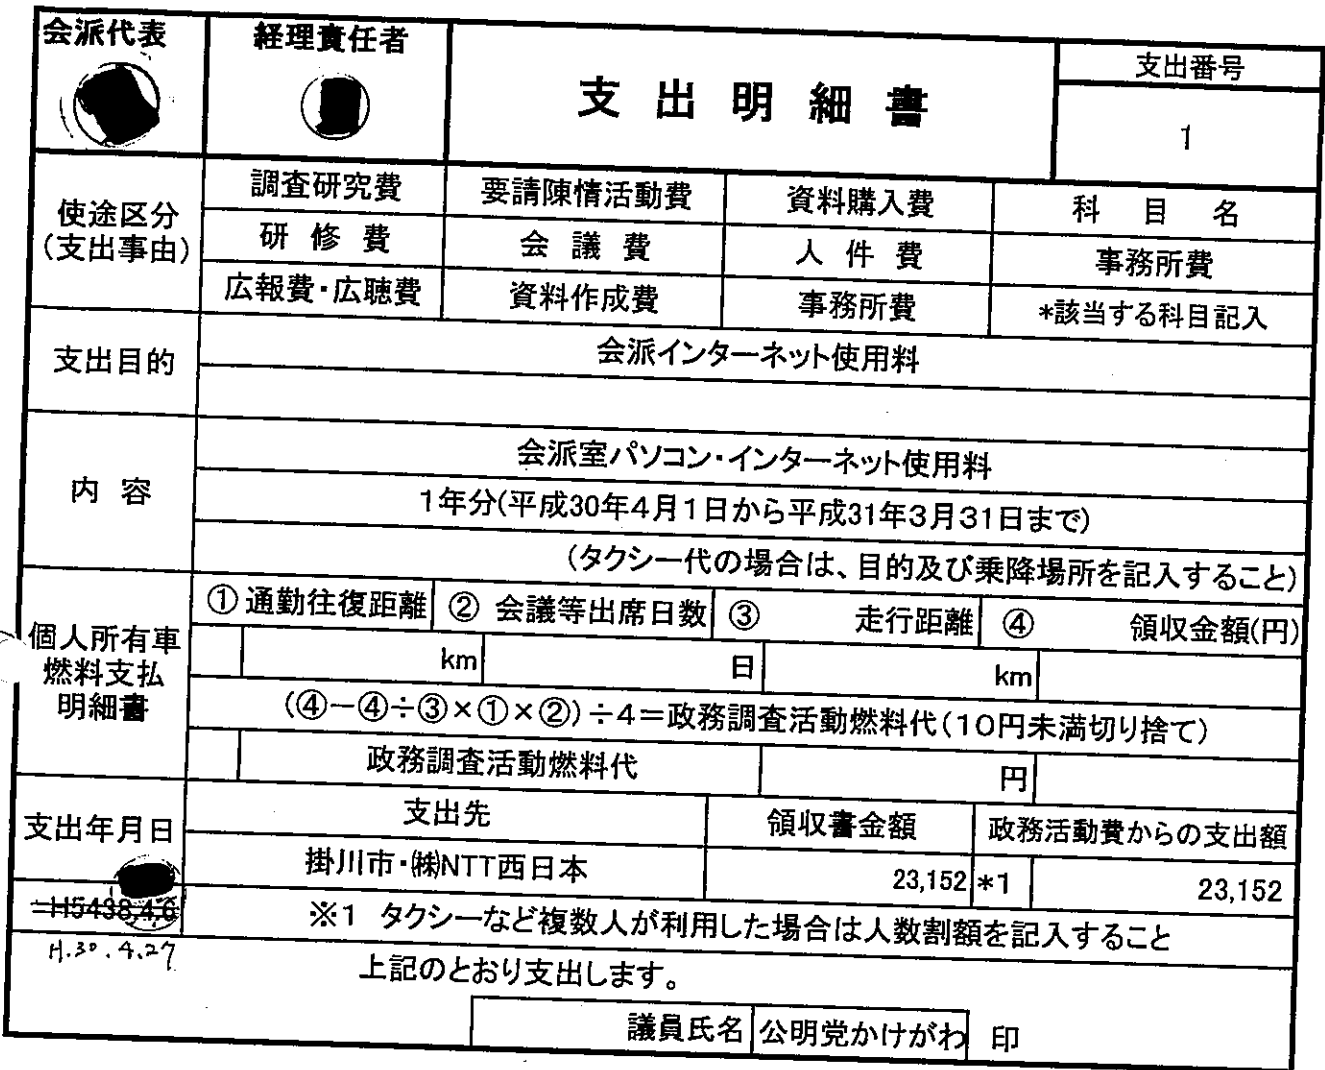 会派代表
経理責任者
支出明細書
支出番号
1
使途区分
(支出事由)
調査研究費 要請陳情活動費 資料購入費 科目名
研修費 会議費 人件費 事務所費
広報費・広聴費 資料作成費 事務所費 *該当する科目記入
支出目的
会派インターネット使用料
内容
会派室パソコン・インターネット使用料
1年分(平成30年4月1日から平成31年3月31日まで)
(タクシー代の場合は、目的及び乗降場所を記入すること)
個人所有車
燃料支払
明細書
①通勤往復距離 ② 会議等出席日数 ③ 走行距離 ④ 領収金額(円)
km 日 km
(④-④÷③×①×②)÷4=政務調査活動燃料代(10円未満切り捨て)
政務調査活動燃料代 円
支出年月日
支出先 領収書金額 政務活動費からの支出額
掛川市・㈱NTT西日本 23,152 *1 23,152
※1 タクシーなど複数人が利用した場合は人数割額を記入すること
H.30.4.27
上記のとおり支出します。
議員氏名 公明党かけがわ 印